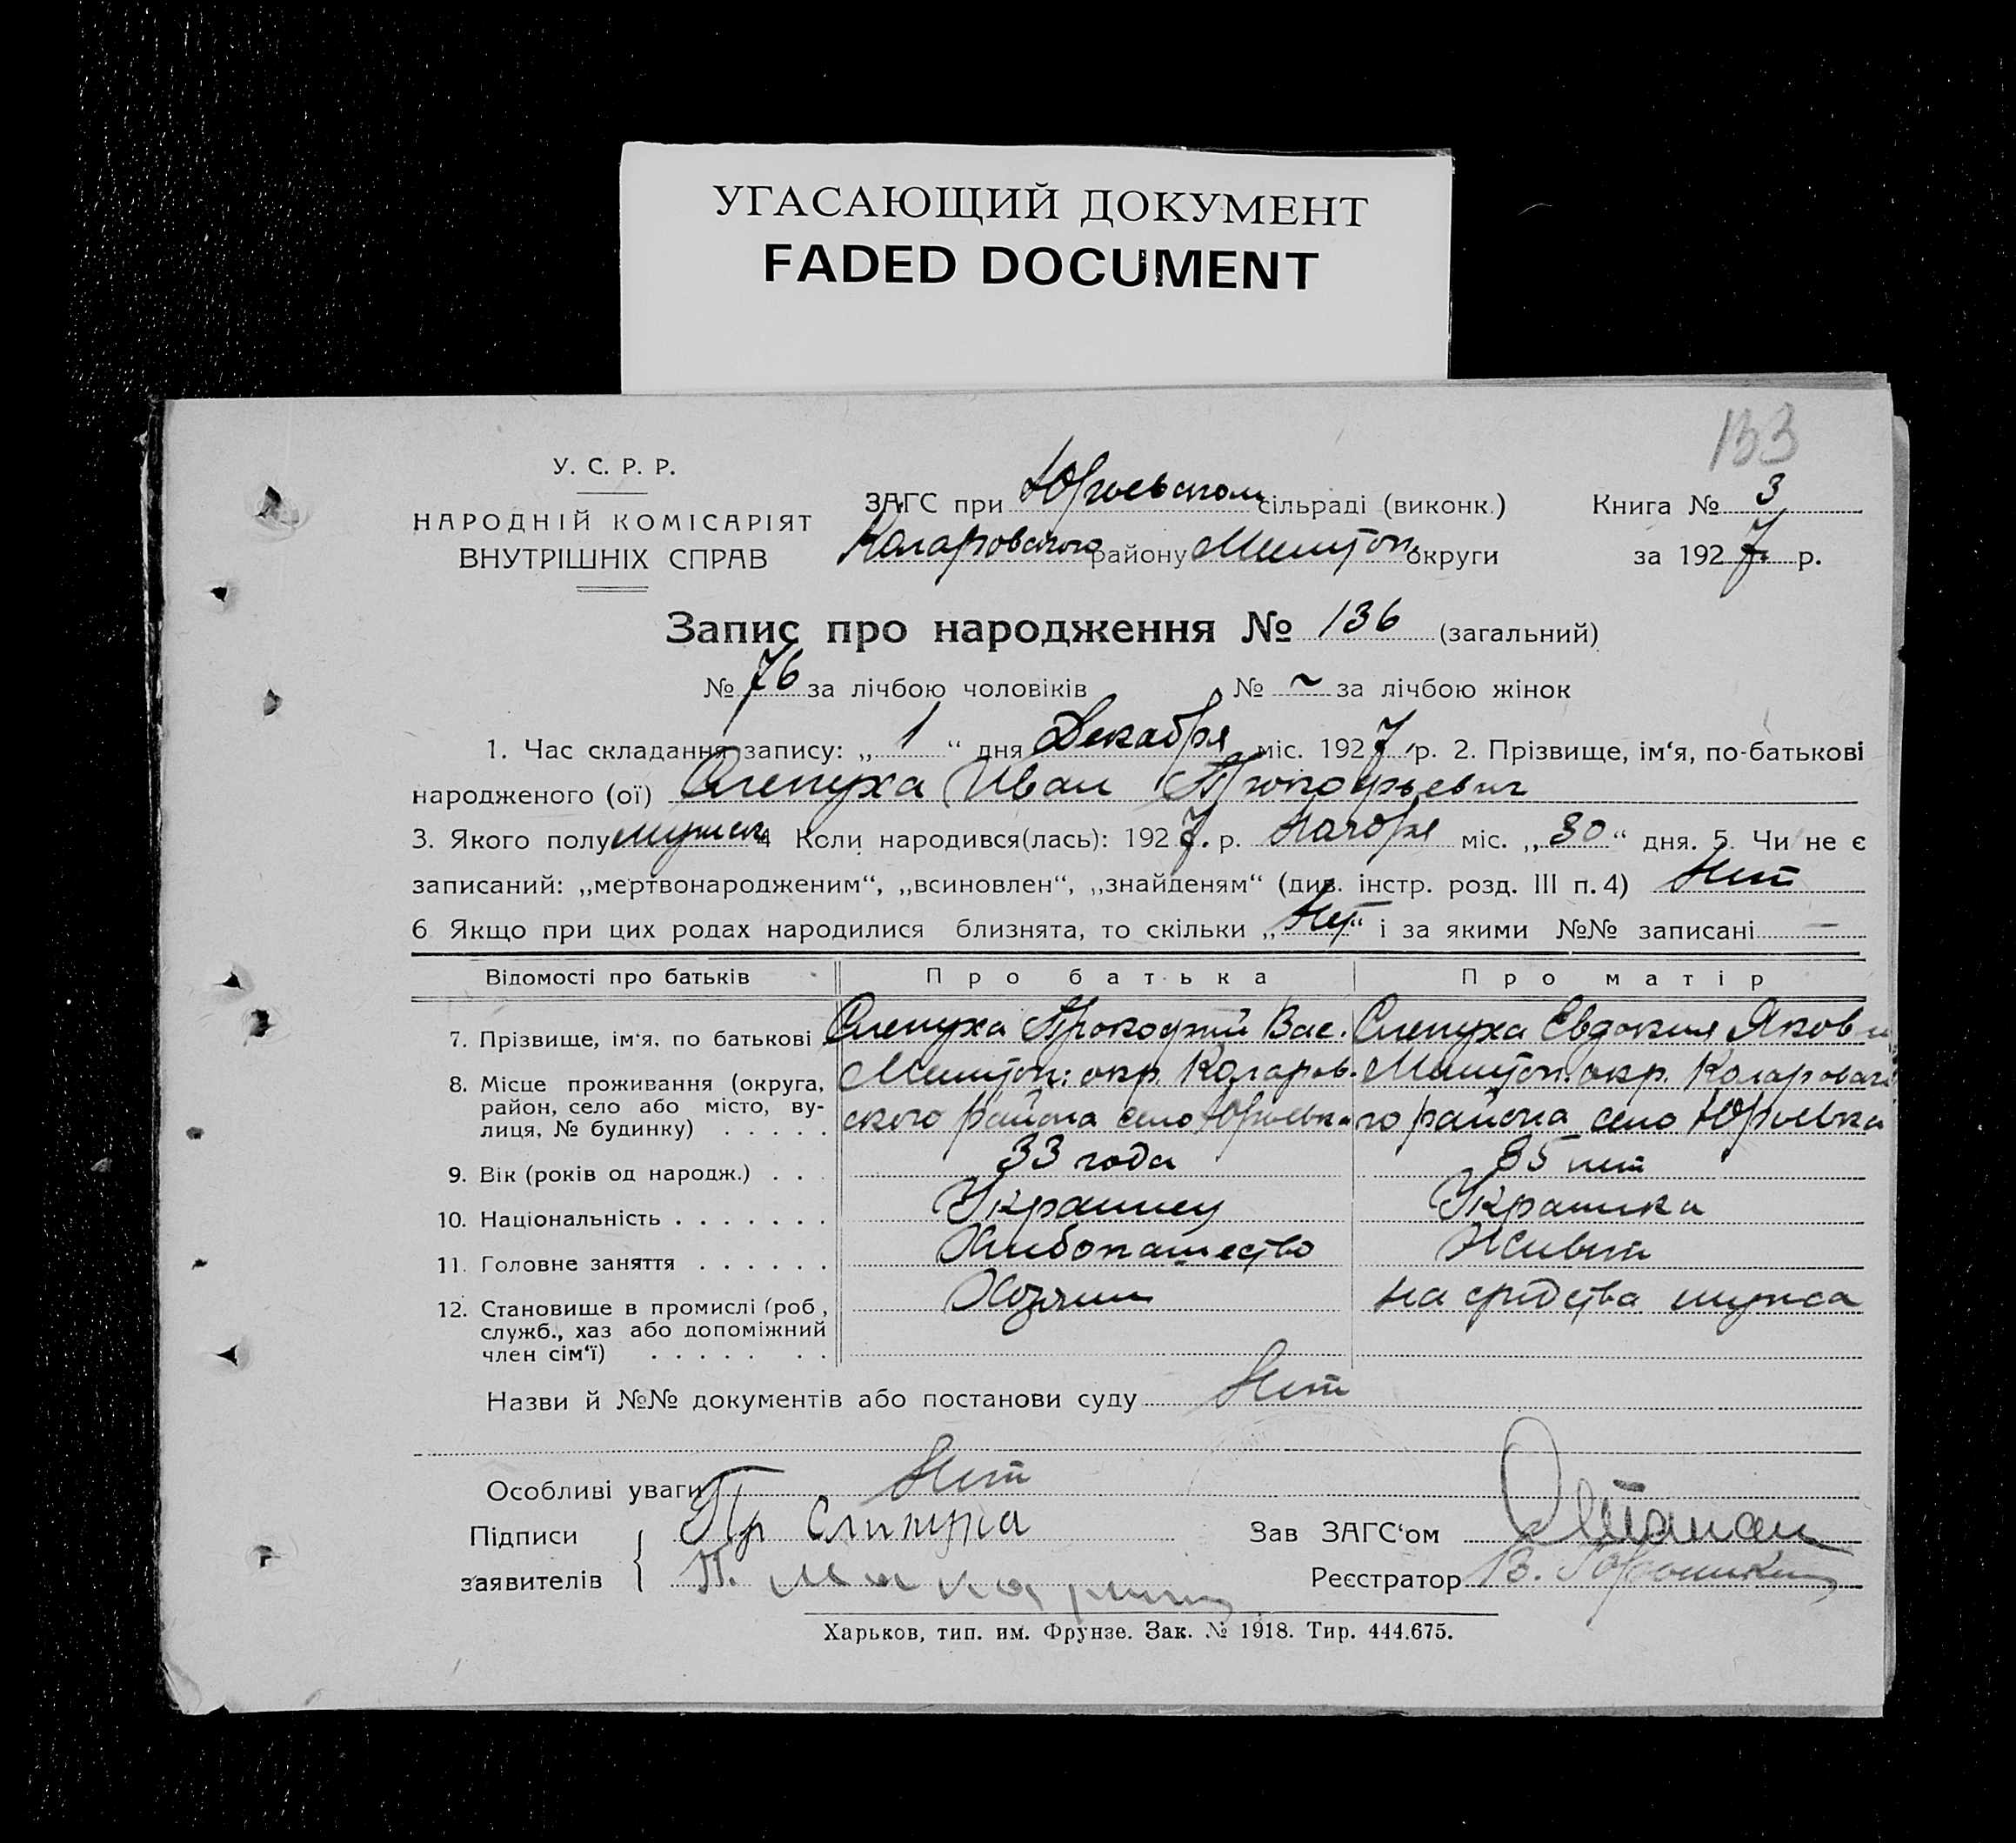 УГАСАЮЩИЙ ДОКУМЕНТ
FADED DOCUMENT
133
У. С. Р. Р.
НАРОДНІЙ КОМІСАРІЯТ
ВНУТРІШНІХ СПРАВ
ЗАГС при Юрьевском сільраді (виконк.)
Коларовского району Мелитоп. округи
Книга № 3
за 1927 р.
Запис про народження № 136 (загальний)
№ 76 за лічбою чоловіків № ~ за лічбою жінок
1. Час складання запису: „ 1 “ дня Декабря міс. 1927 р. 2. Прізвище, ім‘я, по-батькові
народженого (ої) Слепуха Иван Прокофьевич
3. Якого полу мужск 4 Коли народився(лась): 1927. р. Ноября міс. „ 30 “ дня. 5. Чи не є
записаний: „мертвонародженим“, „всиновлен“, „знайденям“ (див. інстр. розд. III п. 4) Нет
6 Якщо при цих родах народилися близнята, то скільки „ Нет “ і за якими №№ записані —
Відомості про батьків Про батька Про матір
7. Прізвище, ім‘я, по батькові Слепуха Прокофий Вас. Слепуха Евдокия Яковл
8. Місце проживання (округа, Мелитоп: окр. Коларов- Мелитоп: окр. Коларовско
район, село або місто, ву- ского района село Юрьевка го района село Юрьевка
лиця, № будинку) . . . . .
9. Вік (років од народж.) . . . 33 года 35 лет
10. Національність . . . . . . . Украинец Украинка
11. Головне заняття . . . . . . Хлебопашество Живет
12. Становище в промислі (роб, Хозяин на средства мужа
служб., хаз або допоміжний
член сім‘ї) . . . . . . .
Назви й №№ документів або постанови суду Нет
Особливі уваги Нет
Підписи Пр Слипуха
заявителів П.
Зав ЗАГС‘ом
Реєстратор В.
Харьков, тип. им. Фрунзе. Зак. № 1918. Тир. 444.675.